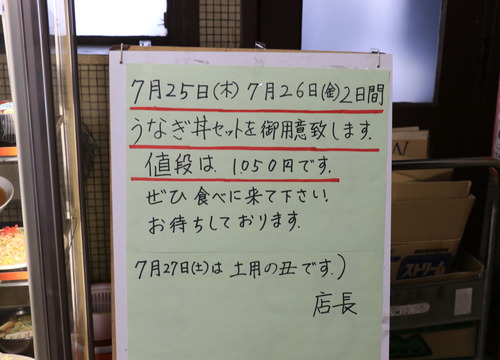 7月25日(木) 7月26日(金) 2日間
うなぎ丼セットを御用意致します.
値段は. 1050円です.
ぜひ 食べに来て下さい.
お待ちしております.
7月27日(土)は 土用の丑です.)
店長
ストリーム